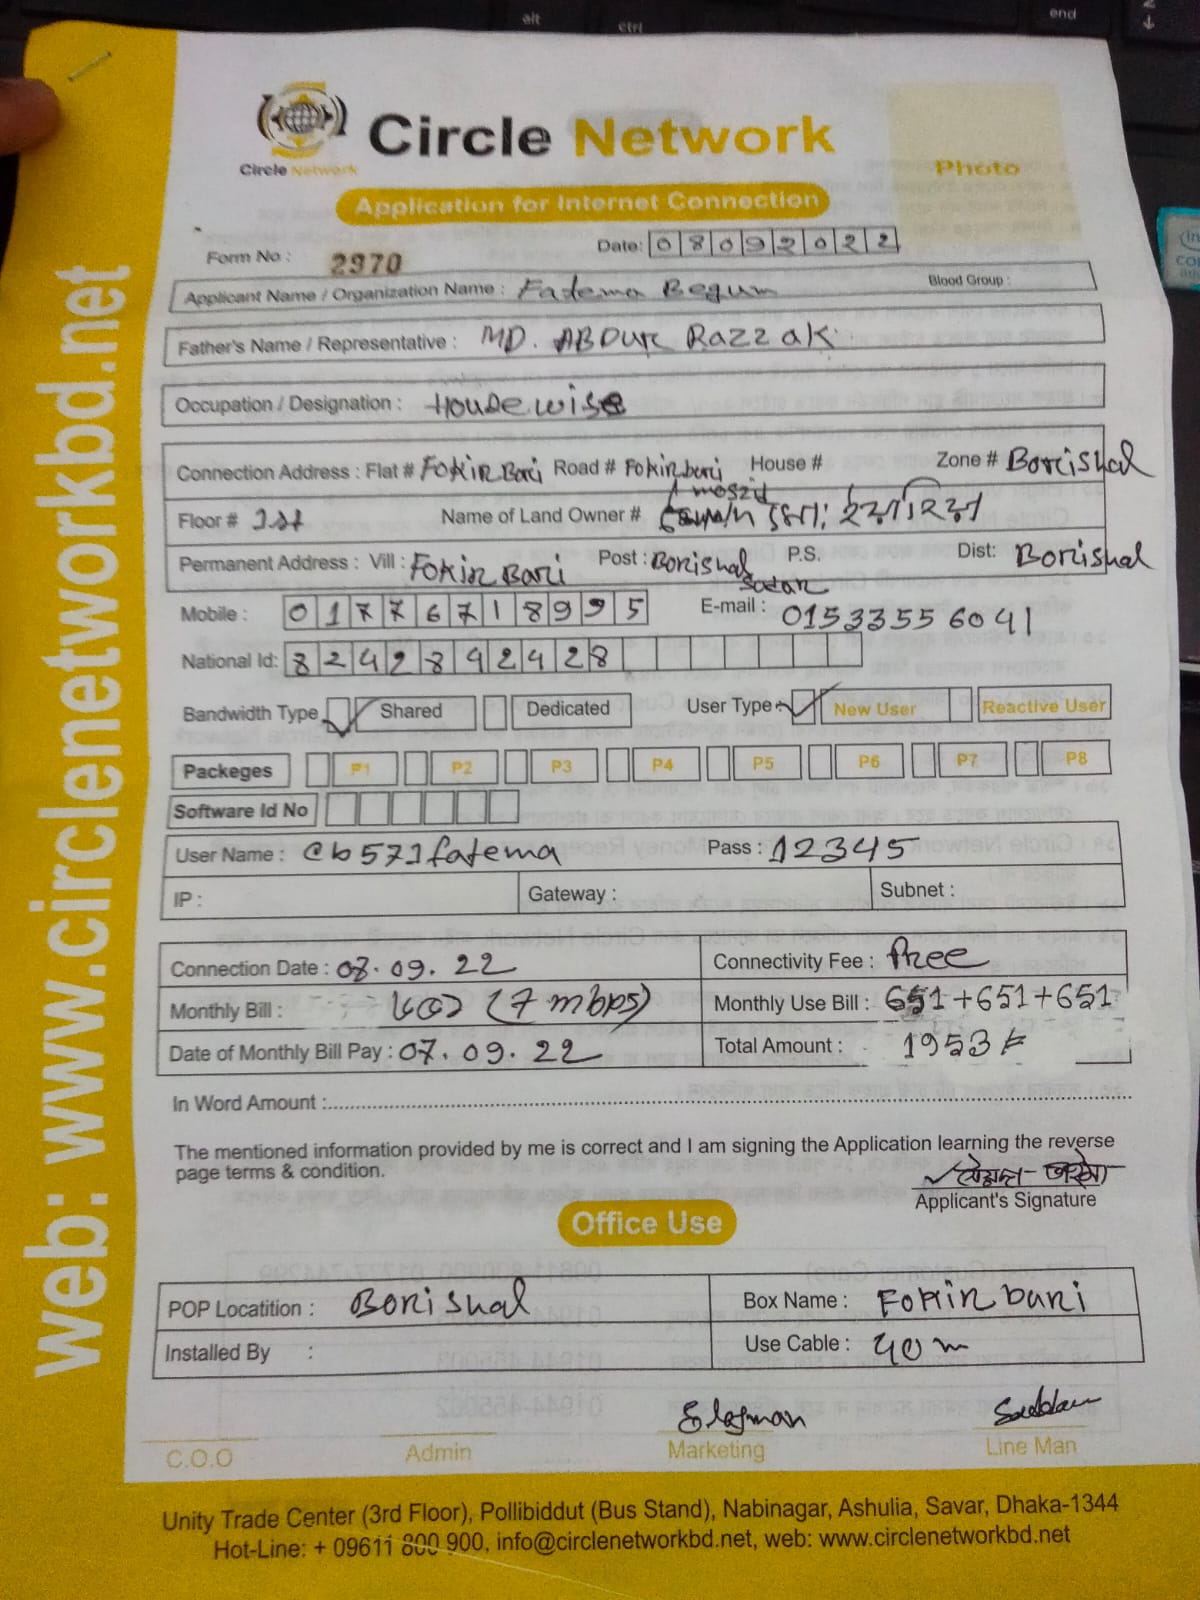 Circle Network
Circle Network
Photo
Application for Internet Connection
Form No : 2970
Date: 08092022
Applicant Name / Organization Name : Fatema Begum Blood Group :
Father's Name / Representative : MD. ABDUR RazzaK
Occupation / Designation : Housewise
Connection Address : Flat # FOKIR Bari Road # Fokir bari House # Zone # Borishal
moszid
Floor # 1st Name of Land Owner #
Permanent Address : Vill : FOKIR Bari Post : Borishal P.S. Dist: Borishal
Sadar
Mobile : 01776718995 E-mail : 01533556041
National Id: 82428942428
Bandwidth Type Shared Dedicated User Type New User Reactive User
Packeges P1 P2 P3 P4 P5 P6 P7 P8
Software Id No
User Name : cb571fatema Pass : 12345
IP : Gateway : Subnet :
Connection Date : 07.09.22 Connectivity Fee : Free
Monthly Bill : (7 mbps) Monthly Use Bill : 651+651+651
Date of Monthly Bill Pay : 07.09.22 Total Amount : 1953
In Word Amount :
The mentioned information provided by me is correct and I am signing the Application learning the reverse
page terms & condition.
Applicant's Signature
Office Use
POP Locatition : Borishal Box Name : FOKIR bari
Installed By : Use Cable : 40 m
C.O.O Admin Marketing Line Man
Unity Trade Center (3rd Floor), Pollibiddut (Bus Stand), Nabinagar, Ashulia, Savar, Dhaka-1344
Hot-Line: + 09611 800 900, info@circlenetworkbd.net, web: www.circlenetworkbd.net
web: www.circlenetworkbd.net
alt
ctrl
end